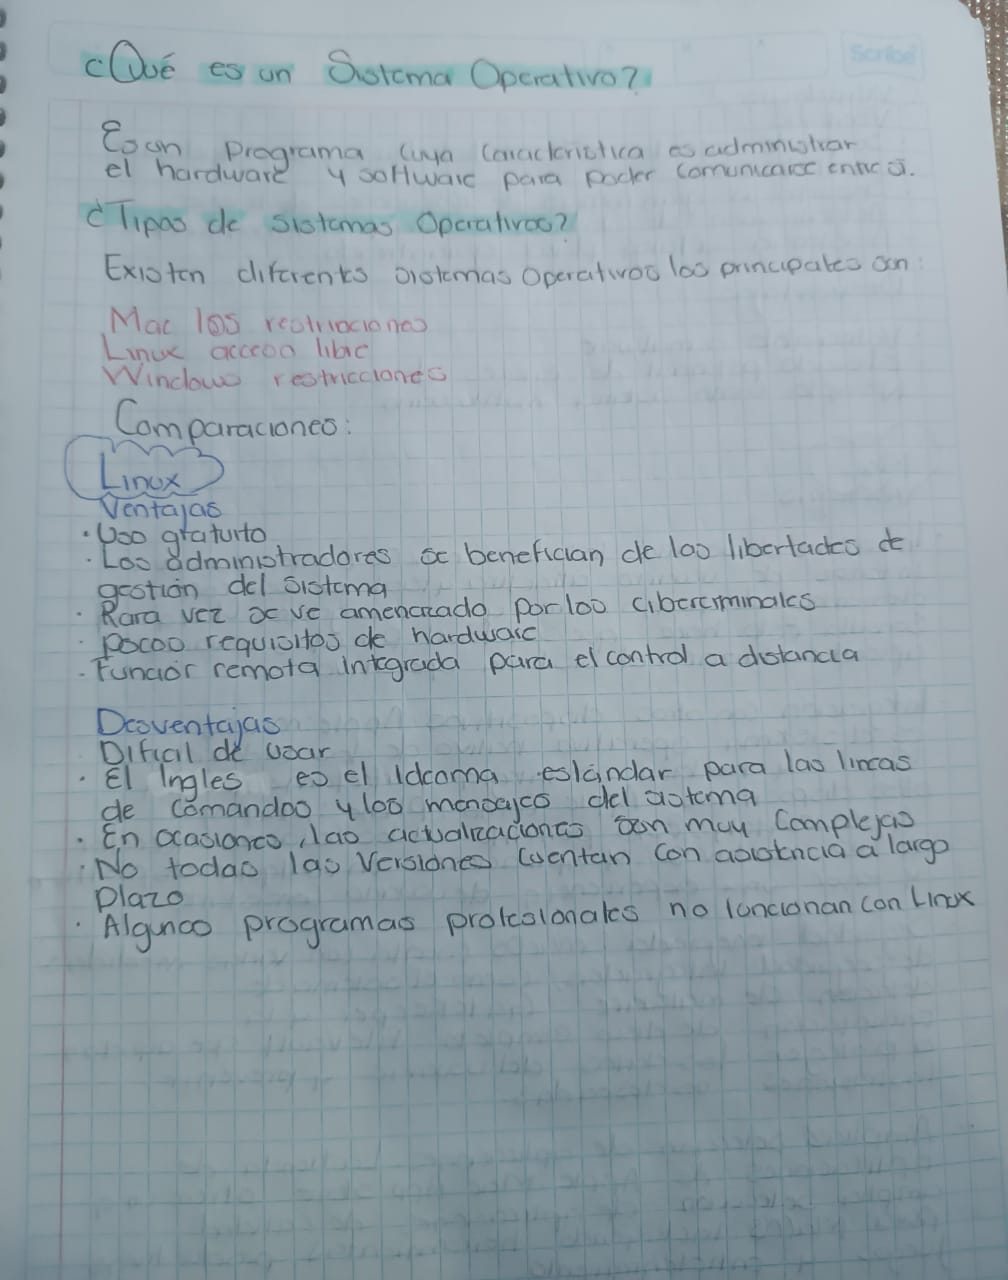 Scribe
¿Qué es un Sistema Operativo?
Es un programa cuya caracteristica es administrar
el hardware y software para poder comunicarse entre si.
¿Tipos de sistemas Operativos?
Existen diferentes sistemas operativos los principales son:
Mac ios restricciones
Linux acceso libre
Windows restricciones
Comparaciones:
Linux
Ventajas
· Uso gratuito
· Los administradores se benefician de las libertades de
gestión del sistema
· Rara vez se ve amenazado por los cibercriminales
· Pocos requisitos de hardware
· Funcior remota integrada para el control a distancia
Desventajas
Dificil de usar
· El Ingles es el Idioma estándar para las lineas
de comandos y los mensajes del sistema
· En ocasiones, las actualizaciones son muy Complejas
· No todas las Versiones Cuentan Con asistencia a largo
Plazo
· Algunos programas profesionales no funcionan con Linux